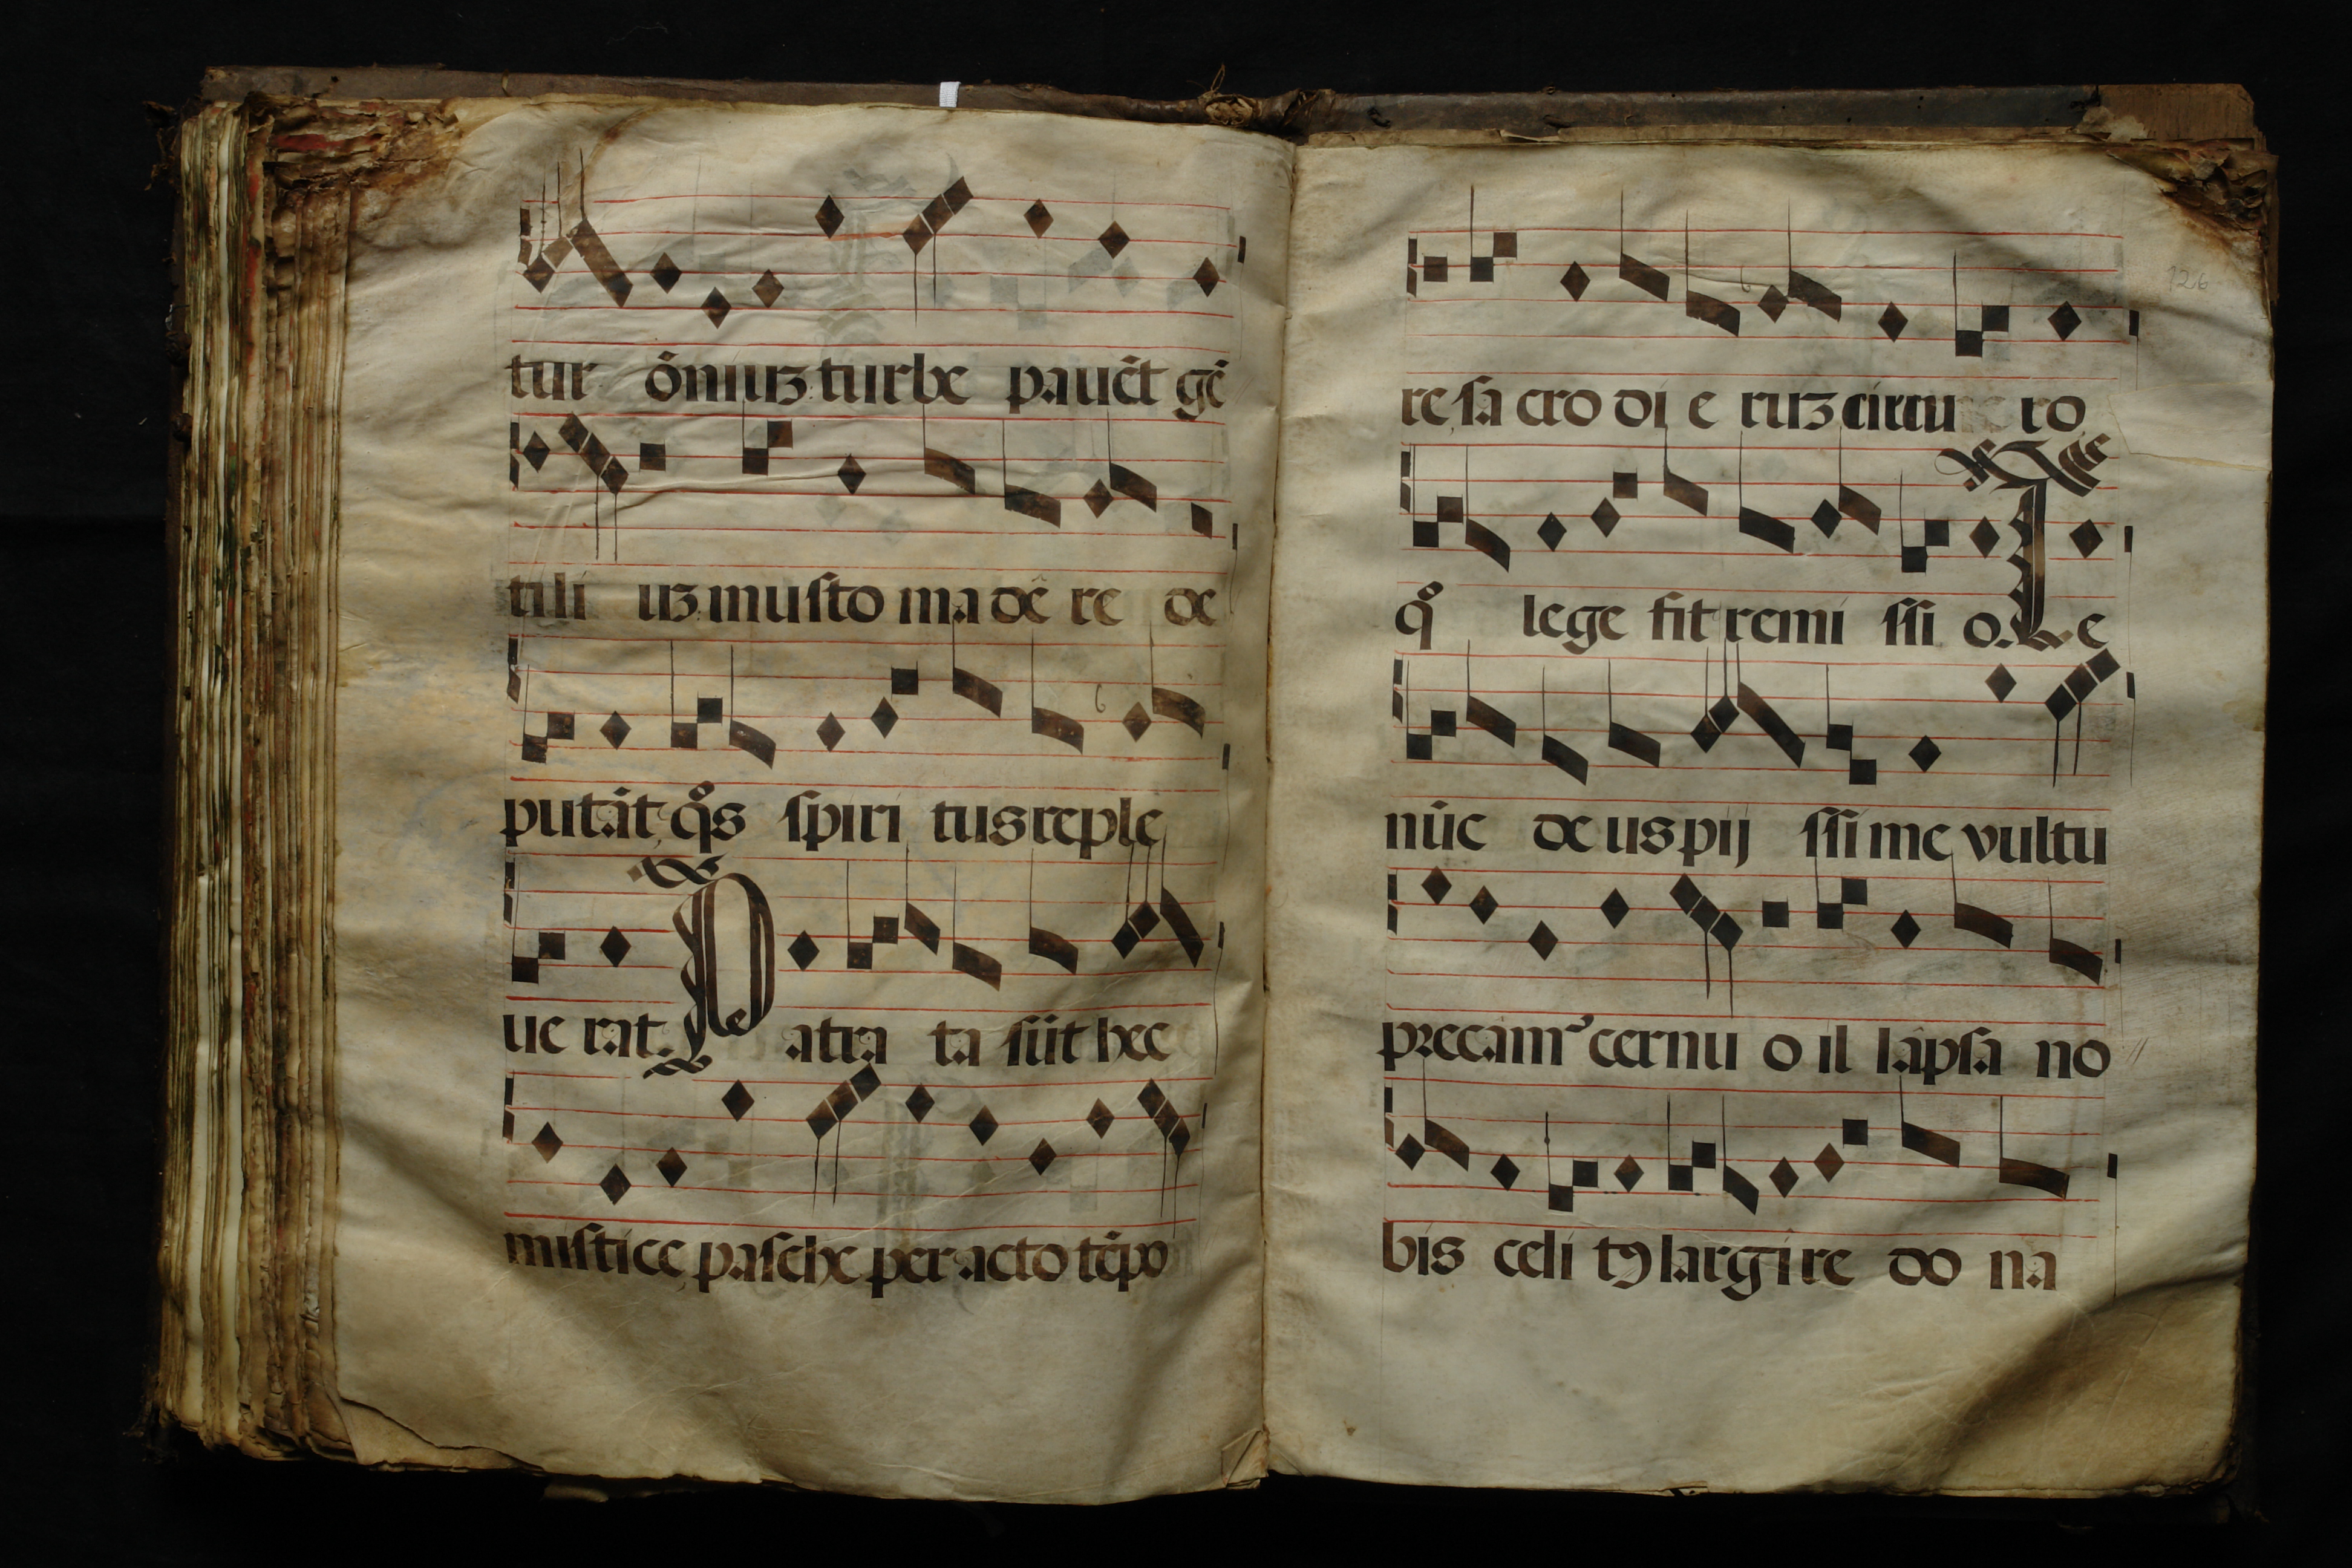 tur õniuʒ turbe pauēt gē
tili uʒ musto madē re de
putāt, q̊s spiri tus reple
ue rat. Patra ta sūt hec
mistice pasche peracto tēpo
126
re, sa cro di e ruʒ circu ro
q̊ lege fit remi ssi o. Te
nūc deus pij ssi me vultu
precam᷒ cernu o il lapsa no
bis celi tꝰ largi re do na